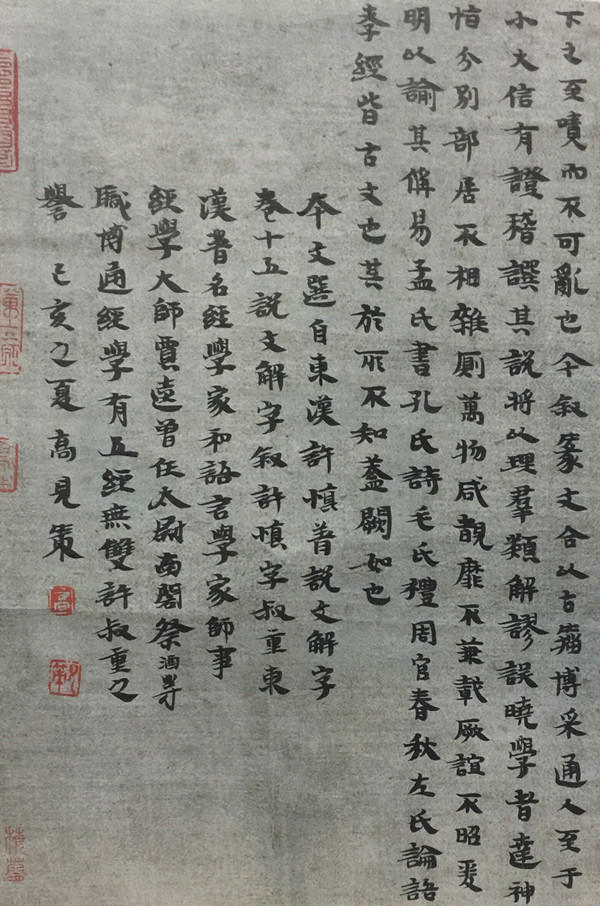 下之至嘖而不可亂也今叙篆文合以古籀博采通人至于
小大信有證稽譔其說將以理羣類解謬誤曉學者達神
恉分別部居不相雜厕萬物咸覩靡不兼載厥誼不昭爰
明以諭其偁易孟氏書孔氏詩毛氏禮周官春秋左氏論語
孝經皆古文也其於所不知蓋闕如也
本文選自東漢許慎著說文解字
卷十五說文解字叙許慎字叔重東
漢著名經學家和語言學家師事
經學大師賈逵曾任太尉南閣祭酒等
職博通經學有五經無雙許叔重之
譽己亥之夏高見策